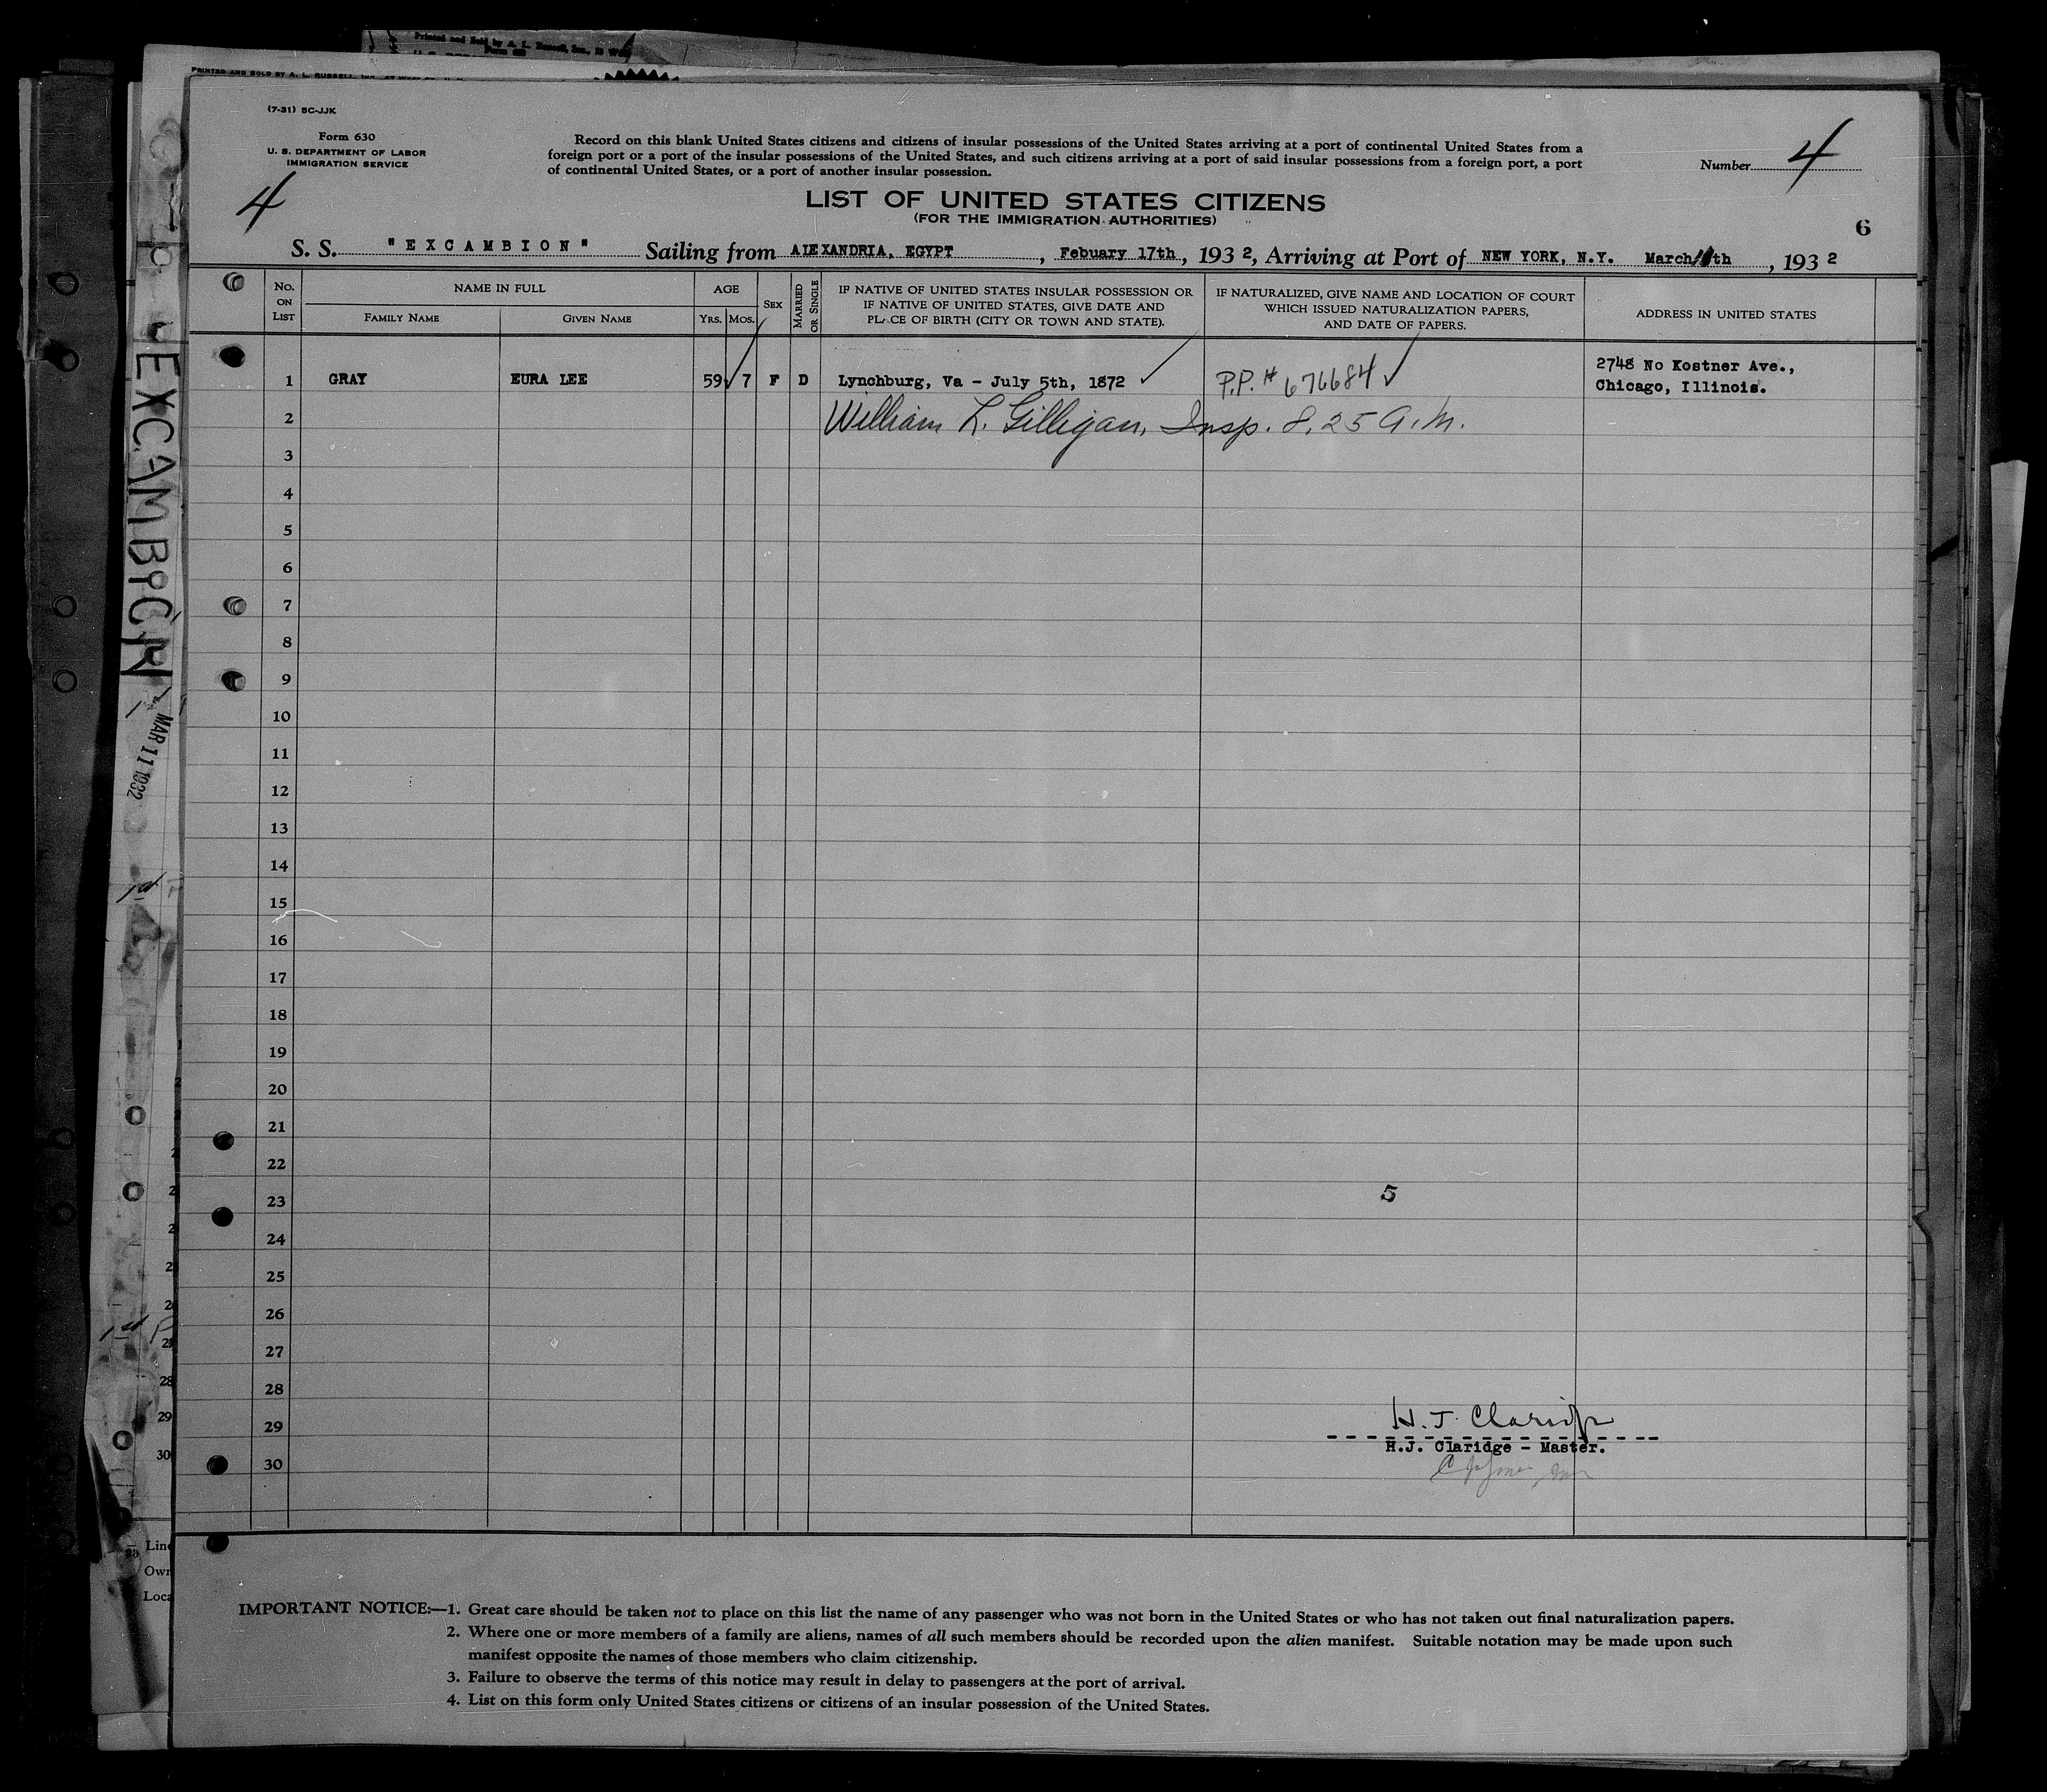 Printed and Sold by A. L. Russell, Inc.,
Form 630
PRINTED AND SOLD BY A. L. RUSSELL, INC.
(7-31) 5C-JJK
Form 630
U. S. DEPARTMENT OF LABOR
IMMIGRATION SERVICE
4
Record on this blank United States citizens and citizens of insular possessions of the United States arriving at a port of continental United States from a
foreign port or a port of the insular possessions of the United States, and such citizens arriving at a port of said insular possessions from a foreign port, a port
of continental United States, or a port of another insular possession.
Number 4
LIST OF UNITED STATES CITIZENS
(FOR THE IMMIGRATION AUTHORITIES)
6
S. S. "EXCAMBION" Sailing from ALEXANDRIA, EGYPT, Febuary 17th, 1932, Arriving at Port of NEW YORK, N.Y. March 11th, 1932
No. ON LIST
NAME IN FULL
FAMILY NAME
GIVEN NAME
AGE
YRS. MOS.
SEX
MARRIED OR SINGLE
IF NATIVE OF UNITED STATES INSULAR POSSESSION OR
IF NATIVE OF UNITED STATES, GIVE DATE AND
PLACE OF BIRTH (CITY OR TOWN AND STATE).
IF NATURALIZED, GIVE NAME AND LOCATION OF COURT
WHICH ISSUED NATURALIZATION PAPERS,
AND DATE OF PAPERS.
ADDRESS IN UNITED STATES
1 GRAY EURA LEE 59 7 F D Lynchburg, Va - July 5th, 1872 P.P. # 676684 2748 No Kostner Ave.,
Chicago, Illinois.
2 William L. Gilligan, Insp. 8.25 A.M.
3
4
5
6
7
8
9
10
11
12
13
14
15
16
17
18
19
20
21
22
23 5
24
25
26
27
28
29 H. J. Claridge
H.J. Claridge - Master.
30
IMPORTANT NOTICE:—1. Great care should be taken not to place on this list the name of any passenger who was not born in the United States or who has not taken out final naturalization papers.
2. Where one or more members of a family are aliens, names of all such members should be recorded upon the alien manifest. Suitable notation may be made upon such
manifest opposite the names of those members who claim citizenship.
3. Failure to observe the terms of this notice may result in delay to passengers at the port of arrival.
4. List on this form only United States citizens or citizens of an insular possession of the United States.
EXCAMBION
MAR 11 1932
1st
1st
28
29
30
Line
Own
Loca